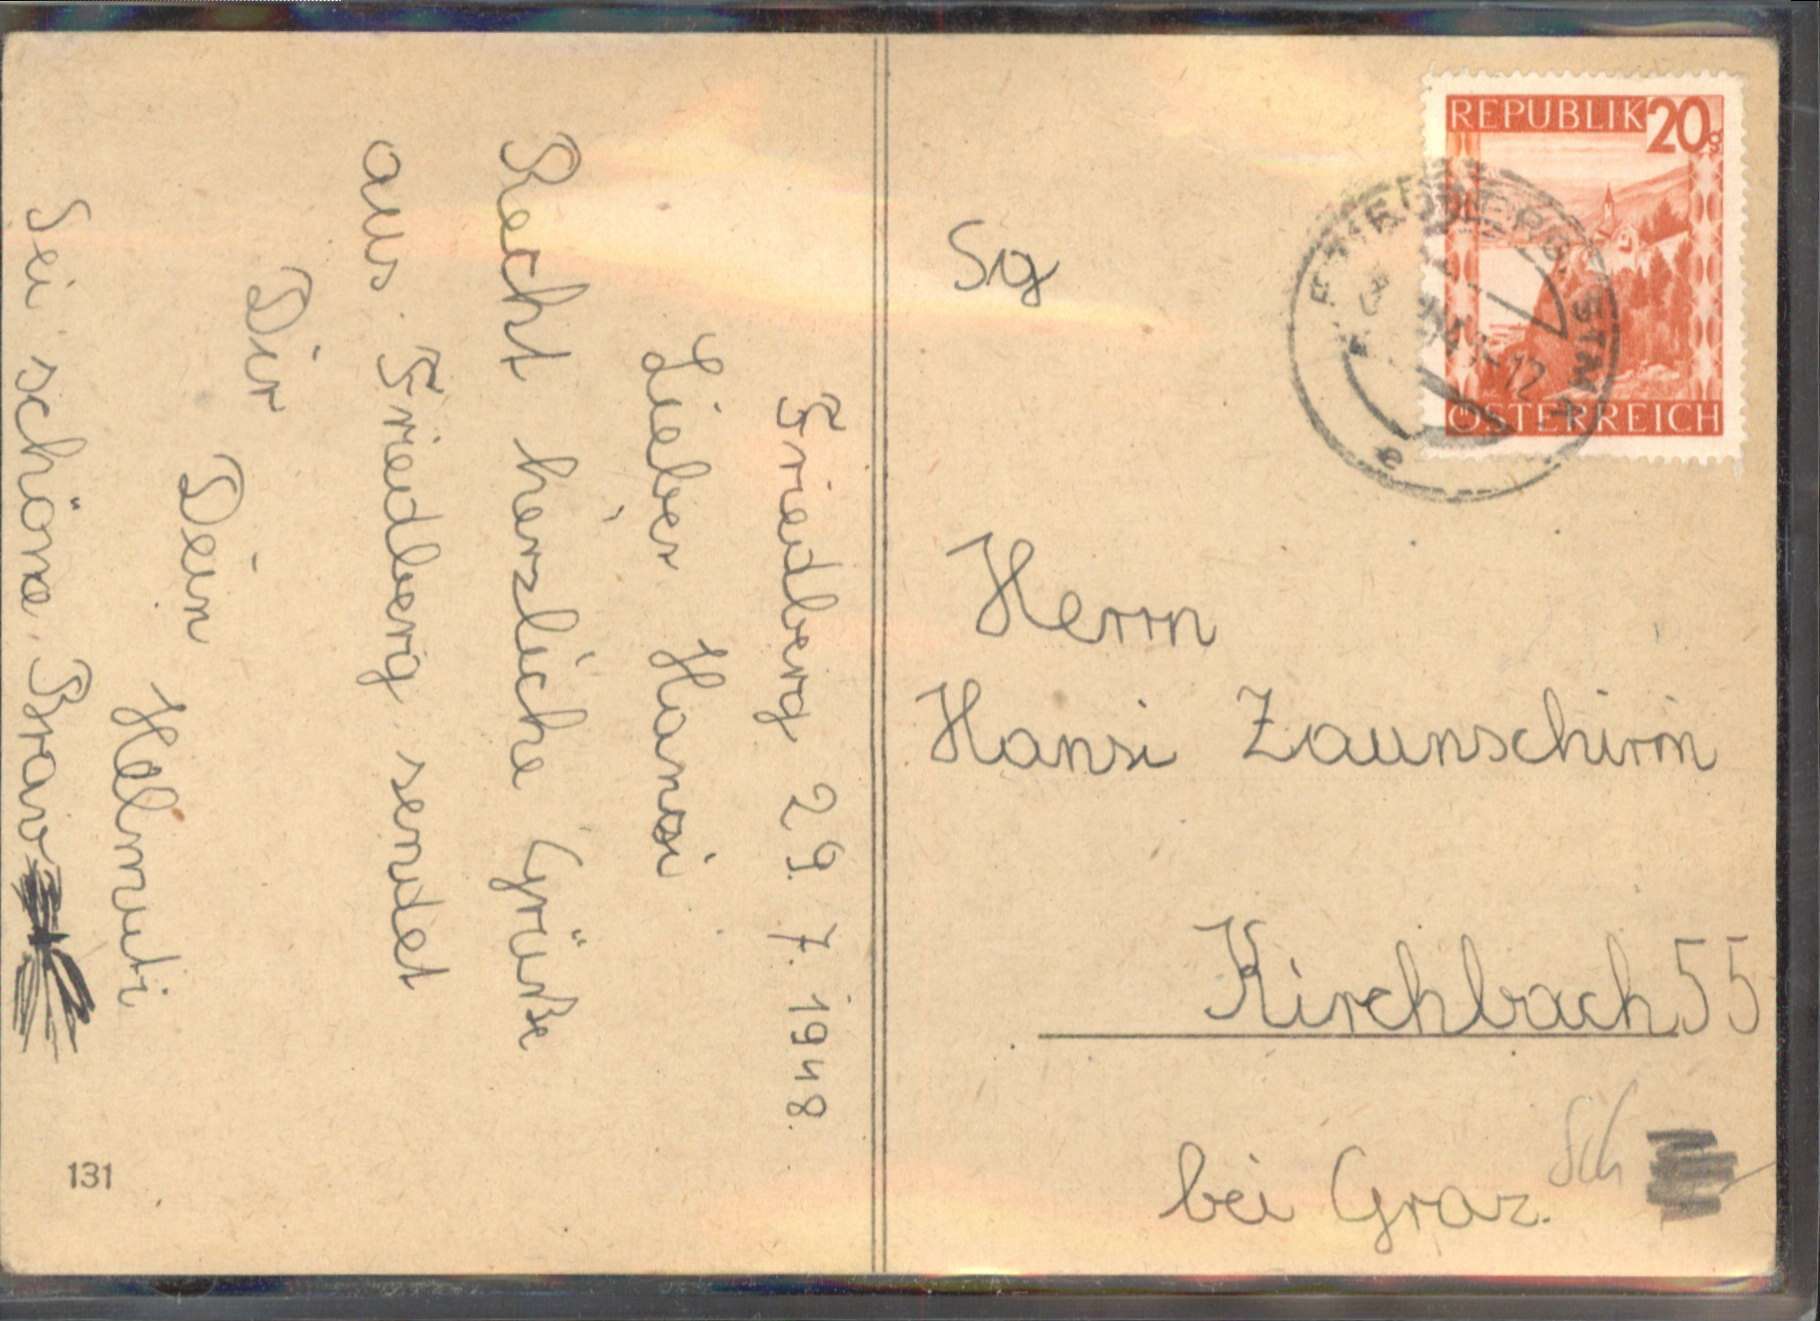 Friedberg 29. 7. 1948.
Lieber Hansi
Recht herzliche Grüße
aus Friedberg sendet
Dir
Dein
Helmuti
Sei schön Brav
131
REPUBLIK 20g
ÖSTERREICH
FRIEDBERG, STMK
Sg
Herrn
Hansi Zaunschirm
Kirchbach 55
bei Graz.
Sch